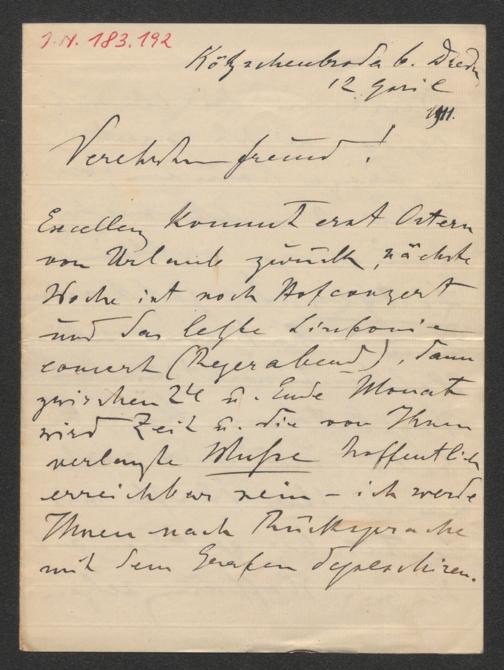 J.N. 183.192
Kötzschenbroda b. Dresd
12 April
1911.
Verehrter Freund!
Excellenz kommt erst Ostern
von Urlaub zurück, nächste
Woche ist noch Hofconzert
und das letzte Sinfonie
concert (Regerabend), dann
zwischen 24 u. Ende Monat
wird Zeit u. die von Ihnen
verlangte Musse hoffentlich
erreichbar sein – ich werde
Ihnen nach Rücksprache
mit dem Grafen depeschiren.